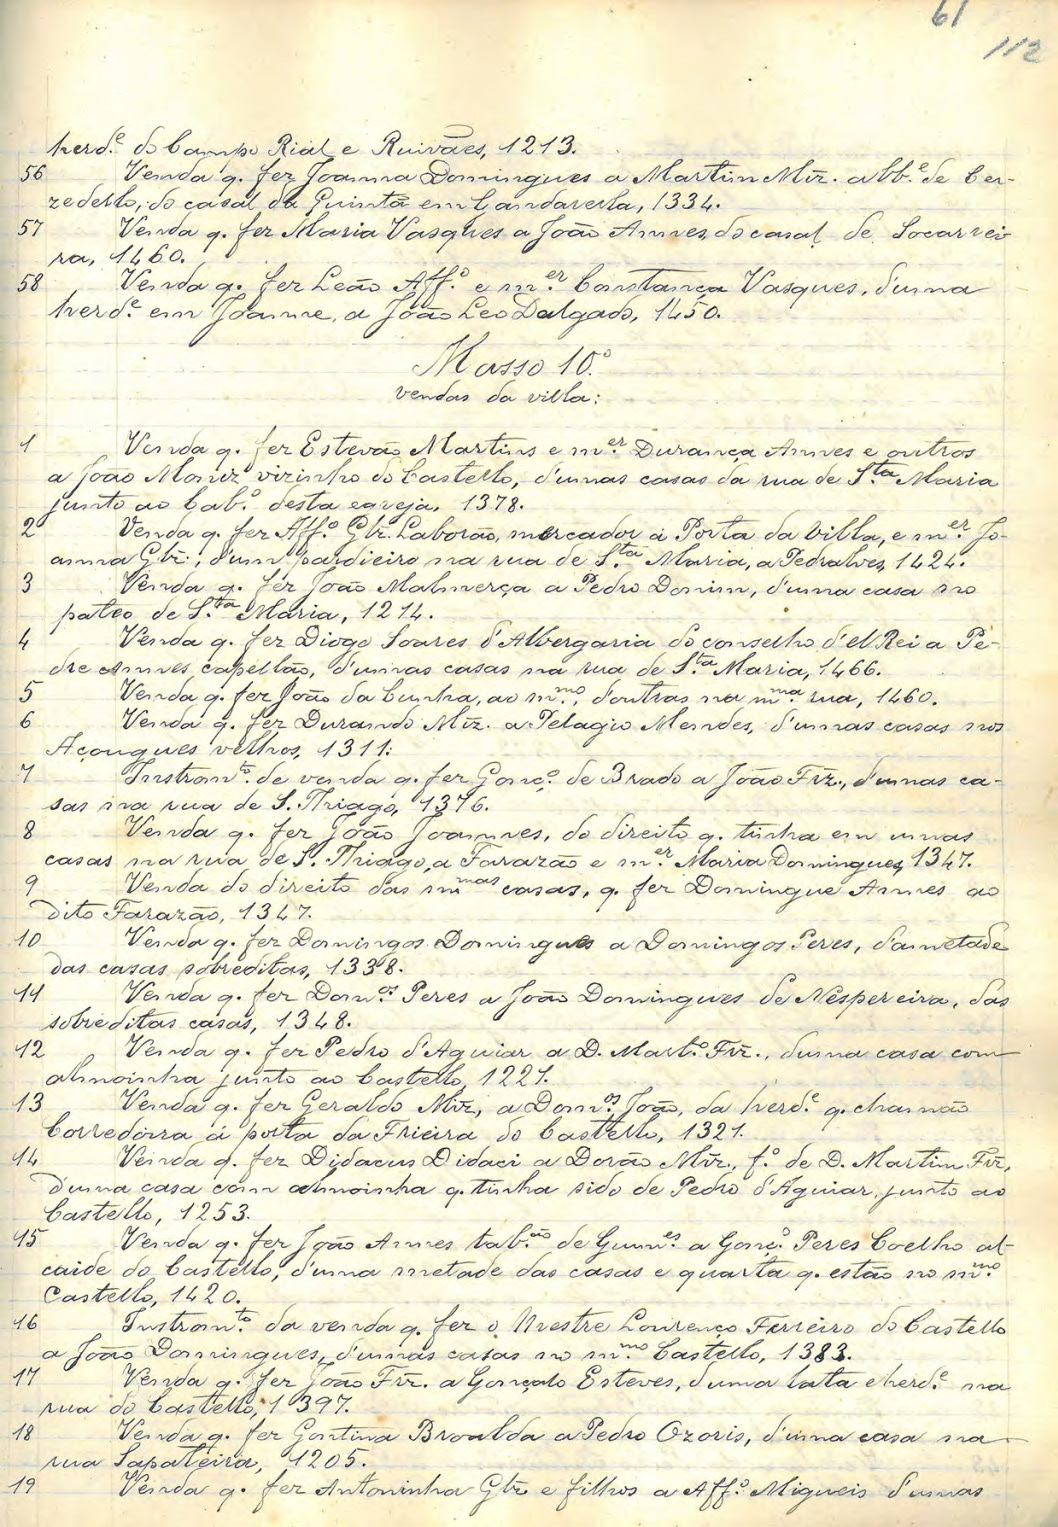 61
112
herd.e do Campo Rial e Ruivães, 1213.
56 Venda q. fez Joanna Domingues a Martim Miz. abb.e de Cer-
zedello, do casal da Quintã em Candaverla, 1334.
57 Venda q. fez Maria Vasques a João Annes, do casal de Socarrei-
ra, 1460.
58 Venda q. fez Leão Aff.o e m.er Constança Vasques, d'uma
herd.e em Joanne, a João Leo Dalgado, 1450.
Masso 10.o
vendas da villa:
1 Venda q. fez Estevão Martins e m.er Durança Annes e outros
a João Moniz vizinho do Castello, d'umas casas da rua de S.ta Maria
junto ao Cab.o desta egreja, 1378.
2 Venda q. fez Aff.o Glz. Laborão, mercador á Porta da Villa, e m.er Jo-
anna Glz., d'um pardieiro na rua de S.ta Maria, a Pedralves, 1424.
3 Venda q. fez João Malmerça a Pedro Donim, d'uma casa no
pateo de S.ta Maria, 1214.
4 Venda q. fez Diogo Soares d'Albergaria do conselho d'el Rei a Pe-
dre Annes capellão, d'umas casas na rua de S.ta Maria, 1466.
5 Venda q. fez João da Cunha, ao m.mo, d'outras na m.ma rua, 1460.
6 Venda q. fez Durando Miz. a Pelagio Mendes, d'umas casas nos
Açougues velhos, 1311.
7 Instrom.to de venda q. fez Gonç.o de Brado a João Frz., d'umas ca-
sas na rua de S. Thiago, 1376.
8 Venda q. fez João Joannes, do direito q. tinha em umas
casas na rua de S. Thiago, a Farazão e m.er Maria Domingues, 1347.
9 Venda do direito das m.mas casas, q. fez Domingue Annes ao
dito Farazão, 1347.
10 Venda q. fez Domingos Domingues a Domingos Peres, d'ametade
das casas sobreditas, 1338.
11 Venda q. fez Dom.os Peres a João Domingues de Nespereira, das
sobreditas casas, 1348.
12 Venda q. fez Pedro d'Aguiar a D. Mart.o Frz., d'uma casa com
almoinha junto ao Castello, 1221.
13 Venda q. fez Geraldo Miz, a Dom.os João, da herd.e q. chamão
Corredoira á porta da Frieira do Castello, 1321.
14 Venda q. fez Didacus Didaci a Dorão Miz., f.o de D. Martim Frz,
d'uma casa com almoinha q. tinha sido de Pedro d'Aguiar, junto ao
Castello, 1253.
15 Venda q. fez João Annes tab.ão de Guim.es a Gonç.o Peres Coelho al-
caide do Castello, d'uma metade das casas e quarta q. estão no m.mo
Castello, 1420.
16 Instrom.to da venda q. fez o Mestre Lourenço Ferreiro do Castello
a João Domingues, d'umas casas no m.mo Castello, 1383.
17 Venda q. fez João Frz. a Gonçalo Esteves, d'uma lata e herd.e na
rua do Castello, 1397.
18 Venda q. fez Gontina Broalda a Pedro Ozoris, d'uma casa na
rua Sapateira, 1205.
19 Venda q. fez Antoninha Glz e filhos a Aff.o Migueis d'umas